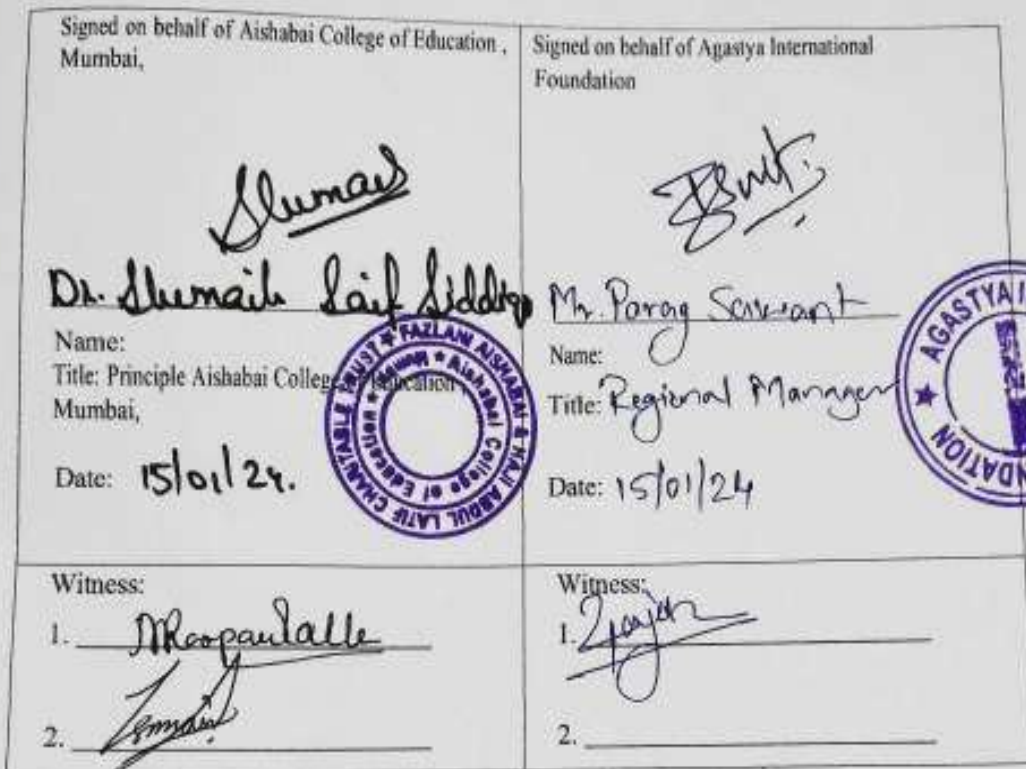 Signed on behalf of Aishabai College of Education ,
Mumbai,
Dr. Shumaila Saif Siddiqu
Name:
Title: Principle Aishabai College of Education
Mumbai,
Date: 15/01/24.
FAZLANI AISHABAI & HAJI ABDUL LATIF CHARITABLE TRUST
Aishabai College of Education
Signed on behalf of Agastya International
Foundation
Mr. Parag Sawant
Name:
Title: Regional Manager
Date: 15/01/24
AGASTYA I
NDATION
Witness:
1.
2.
Witness:
1.
2.